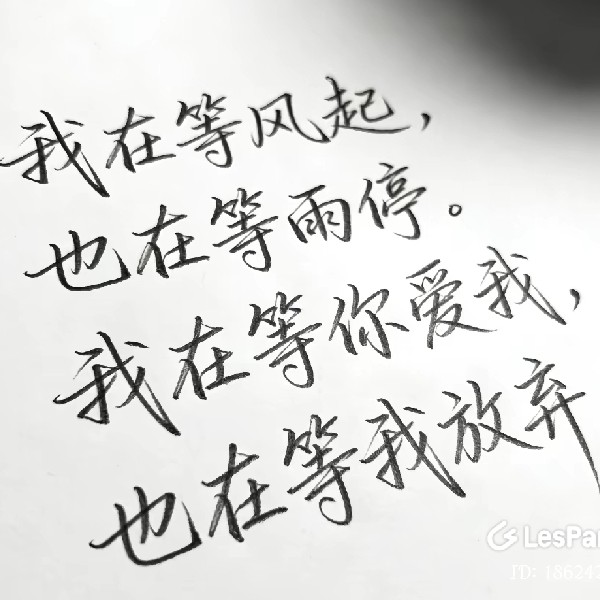 我在等风起，
也在等雨停。
我在等你爱我，
也在等我放弃
LesPar